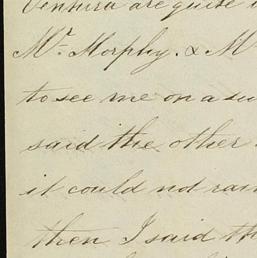 Ventura are quite
Mr. Morphy. & M
to see me on a su
said the other
it could not rain
then I said th